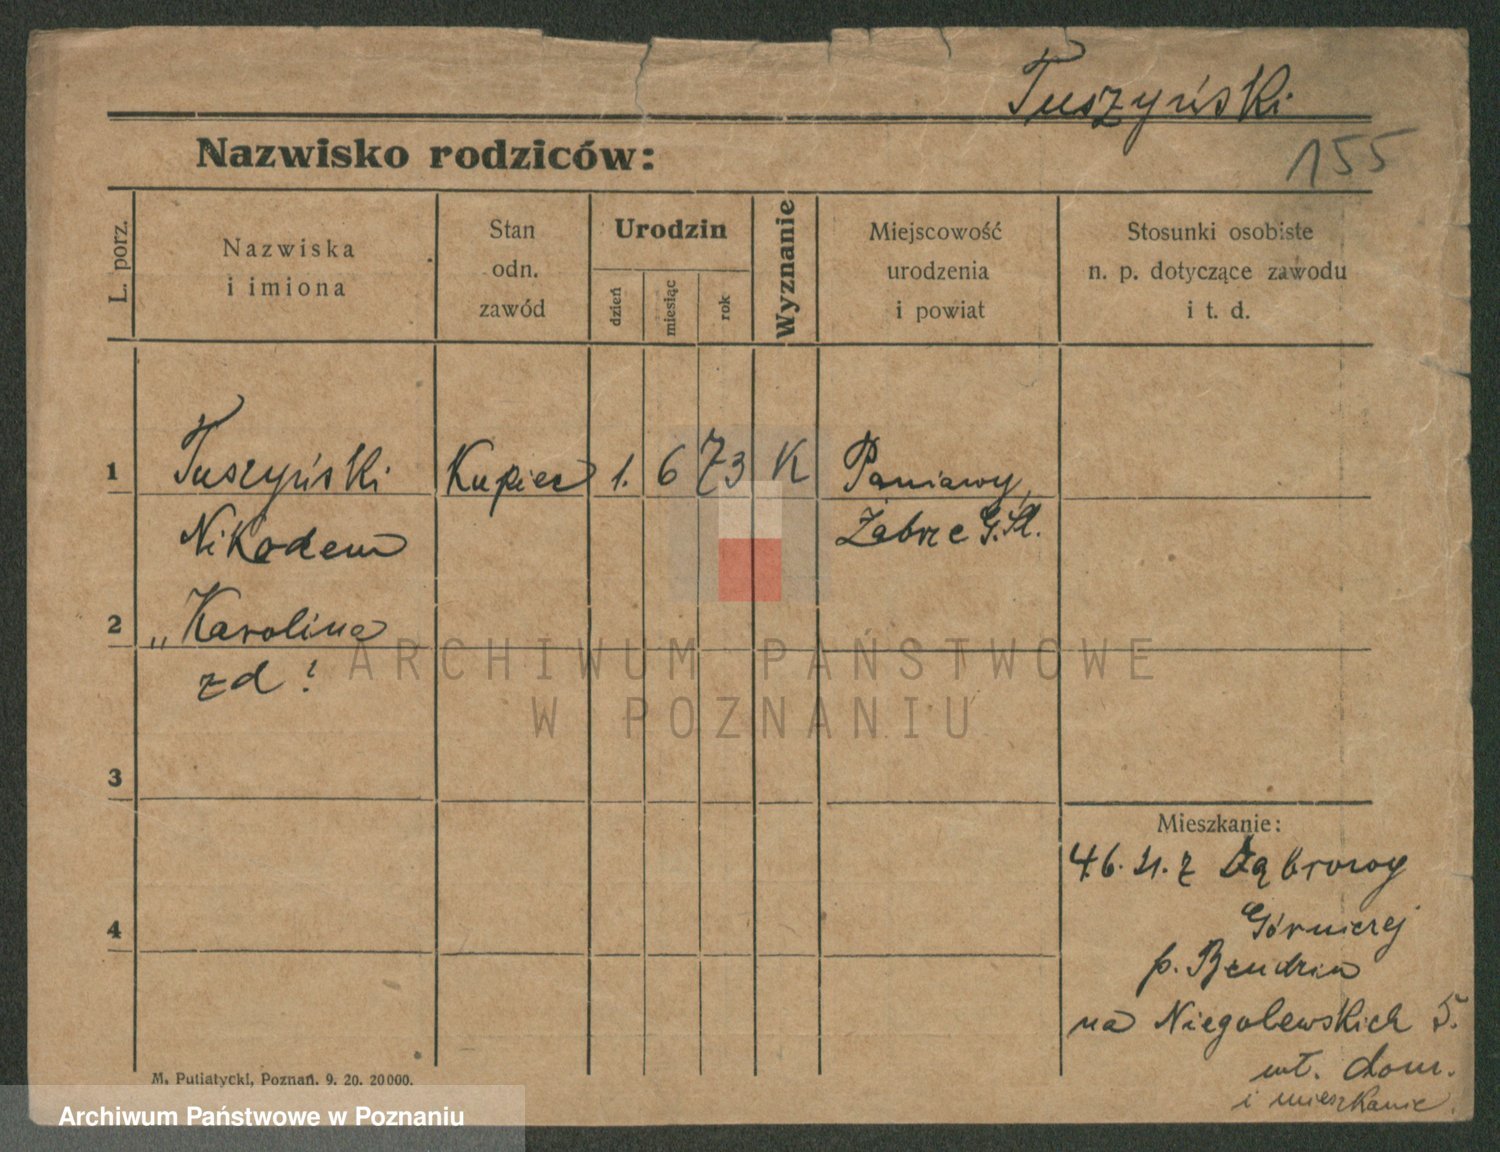 Tuszyński
155
Nazwisko rodziców:
L. porz.
Nazwiska
i imiona
Stan
odn.
zawód
Urodzin
dzień
miesiąc
rok
Wyznanie
Miejscowość
urodzenia
i powiat
Stosunki osobiste
n. p. dotyczące zawodu
i t. d.
1
Tuszyński
Kupiec
1.
6
73
K
Paniawy,
Nikodem
Zabrze G.Śl.
2
„ Karolina
zd ?
3
4
Mieszkanie:
z Dąbrowy
Górniczej
p. Bendzin
na Niegolewskich 5.
wł. dom.
i mieszkanie.
M. Putiatycki, Poznań. 9. 20. 20000.
ARCHIWUM PAŃSTWOWE
W POZNANIU
Archiwum Państwowe w Poznaniu